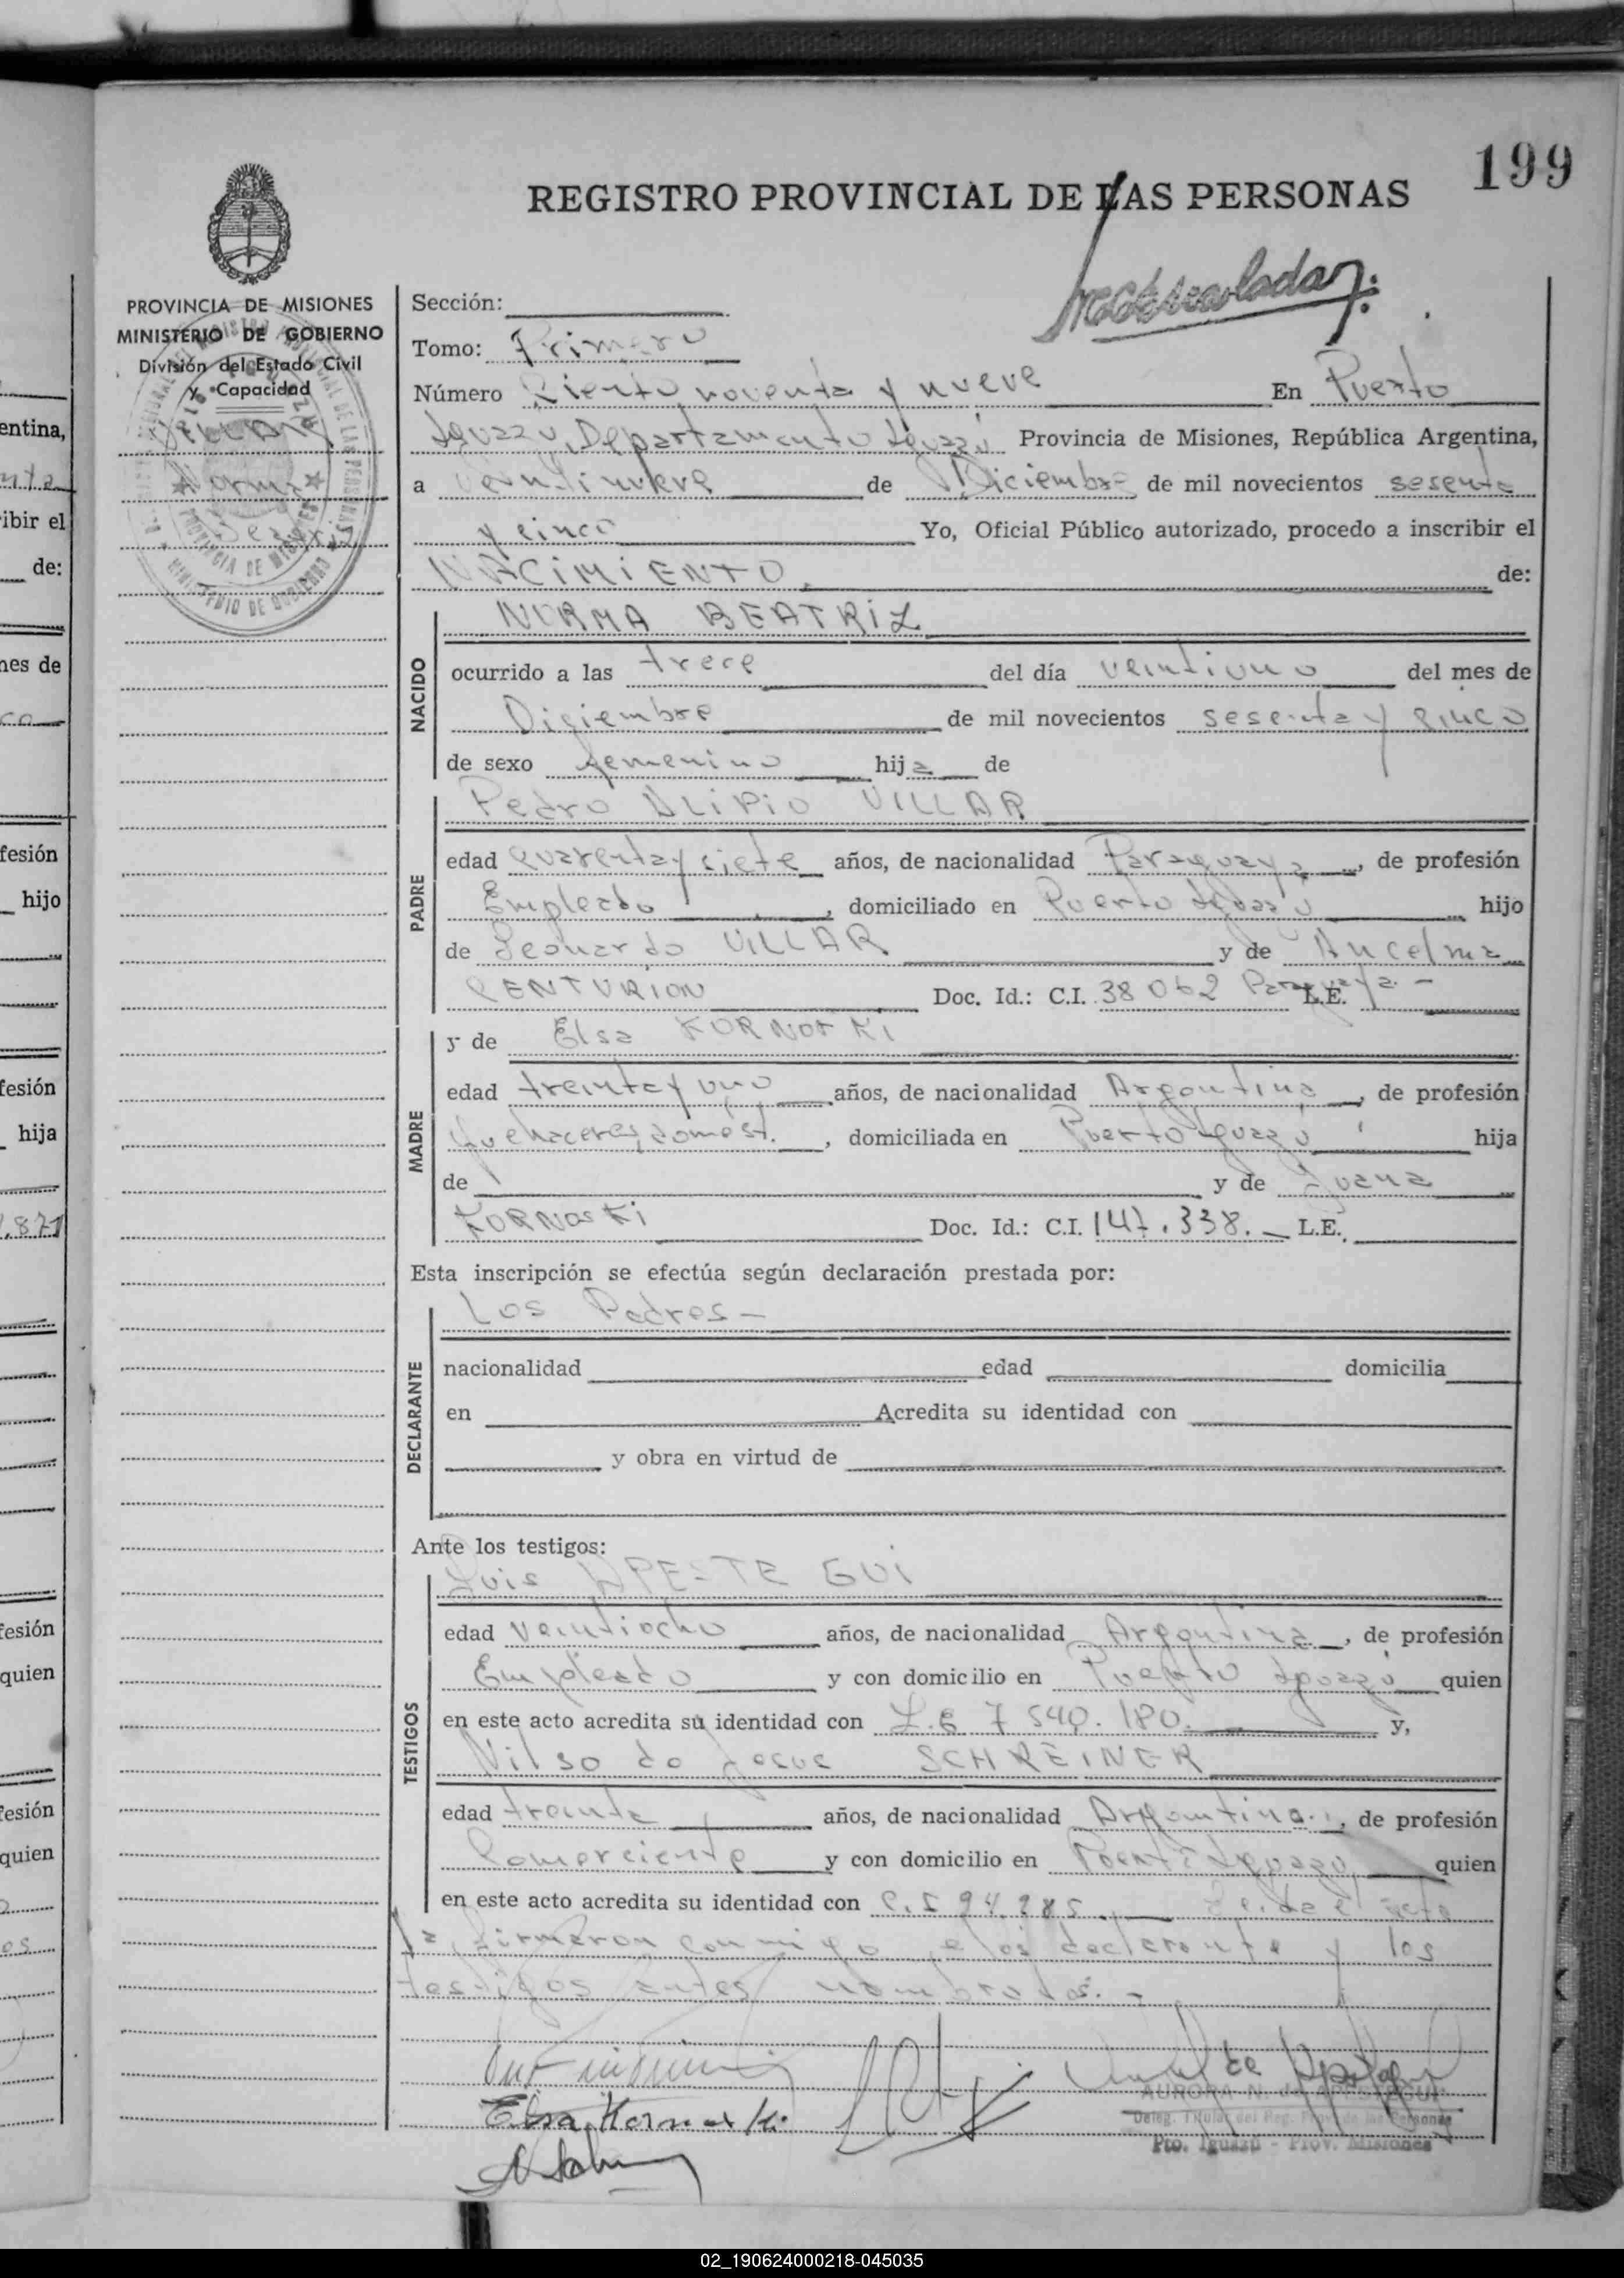 199
REGISTRO PROVINCIAL DE LAS PERSONAS
PROVINCIA DE MISIONES
MINISTERIO DE GOBIERNO
División del Estado Civil
y Capacidad
VILLAR
Norma
Beatriz
Sección:
Tomo: Primero
Número Ciento noventa y nueve En Puerto
Iguazú, Departamento Iguazú Provincia de Misiones, República Argentina,
a veintinueve de Diciembre de mil novecientos sesenta
y cinco Yo, Oficial Público autorizado, procedo a inscribir el
NACIMIENTO de:
NACIDO
NORMA BEATRIZ
ocurrido a las trece del día veintiuno del mes de
Diciembre de mil novecientos sesenta y cinco
de sexo femenino hija de
PADRE
Pedro ALIPIO VILLAR
edad cuarenta y siete años, de nacionalidad Paraguaya, de profesión
Empleado, domiciliado en Puerto Iguazú hijo
de Leonardo VILLAR y de Ancelma
CENTURION Doc. Id.: C.I. 38 062 Paraguaya - L.E.
MADRE
y de Elsa KORNOSKI
edad treinta y uno años, de nacionalidad Argentina, de profesión
Quehaceres domést., domiciliada en Puerto Iguazú hija
de y de Juana
KORNOSKI Doc. Id.: C.I. 147.338. L.E.
Esta inscripción se efectúa según declaración prestada por:
DECLARANTE
Los Padres -
nacionalidad edad domicilia
en Acredita su identidad con
y obra en virtud de
Ante los testigos:
TESTIGOS
Luis APESTEGUI
edad veintiocho años, de nacionalidad Argentina, de profesión
Empleado y con domicilio en Puerto Iguazú quien
en este acto acredita su identidad con L.E 7 540.180. y,
Nilso de Jesus SCHREINER
edad treinta años, de nacionalidad Argentina, de profesión
Comerciante y con domicilio en Puerto Iguazú quien
en este acto acredita su identidad con C.I 94.285. Leida el acta
la firmaron conmigo, los declarante y los
testigos antes nombrados. -
Elsa Kornoski
AURORA N. de APESTEGUI
Deleg. Titular del Reg. Prov. de las Personas
Pto. Iguazú - Prov. Misiones
entina,
ibir el
de:
nes de
fesión
hijo
fesión
hija
.871
fesión
quien
fesión
quien
02_190624000218-045035